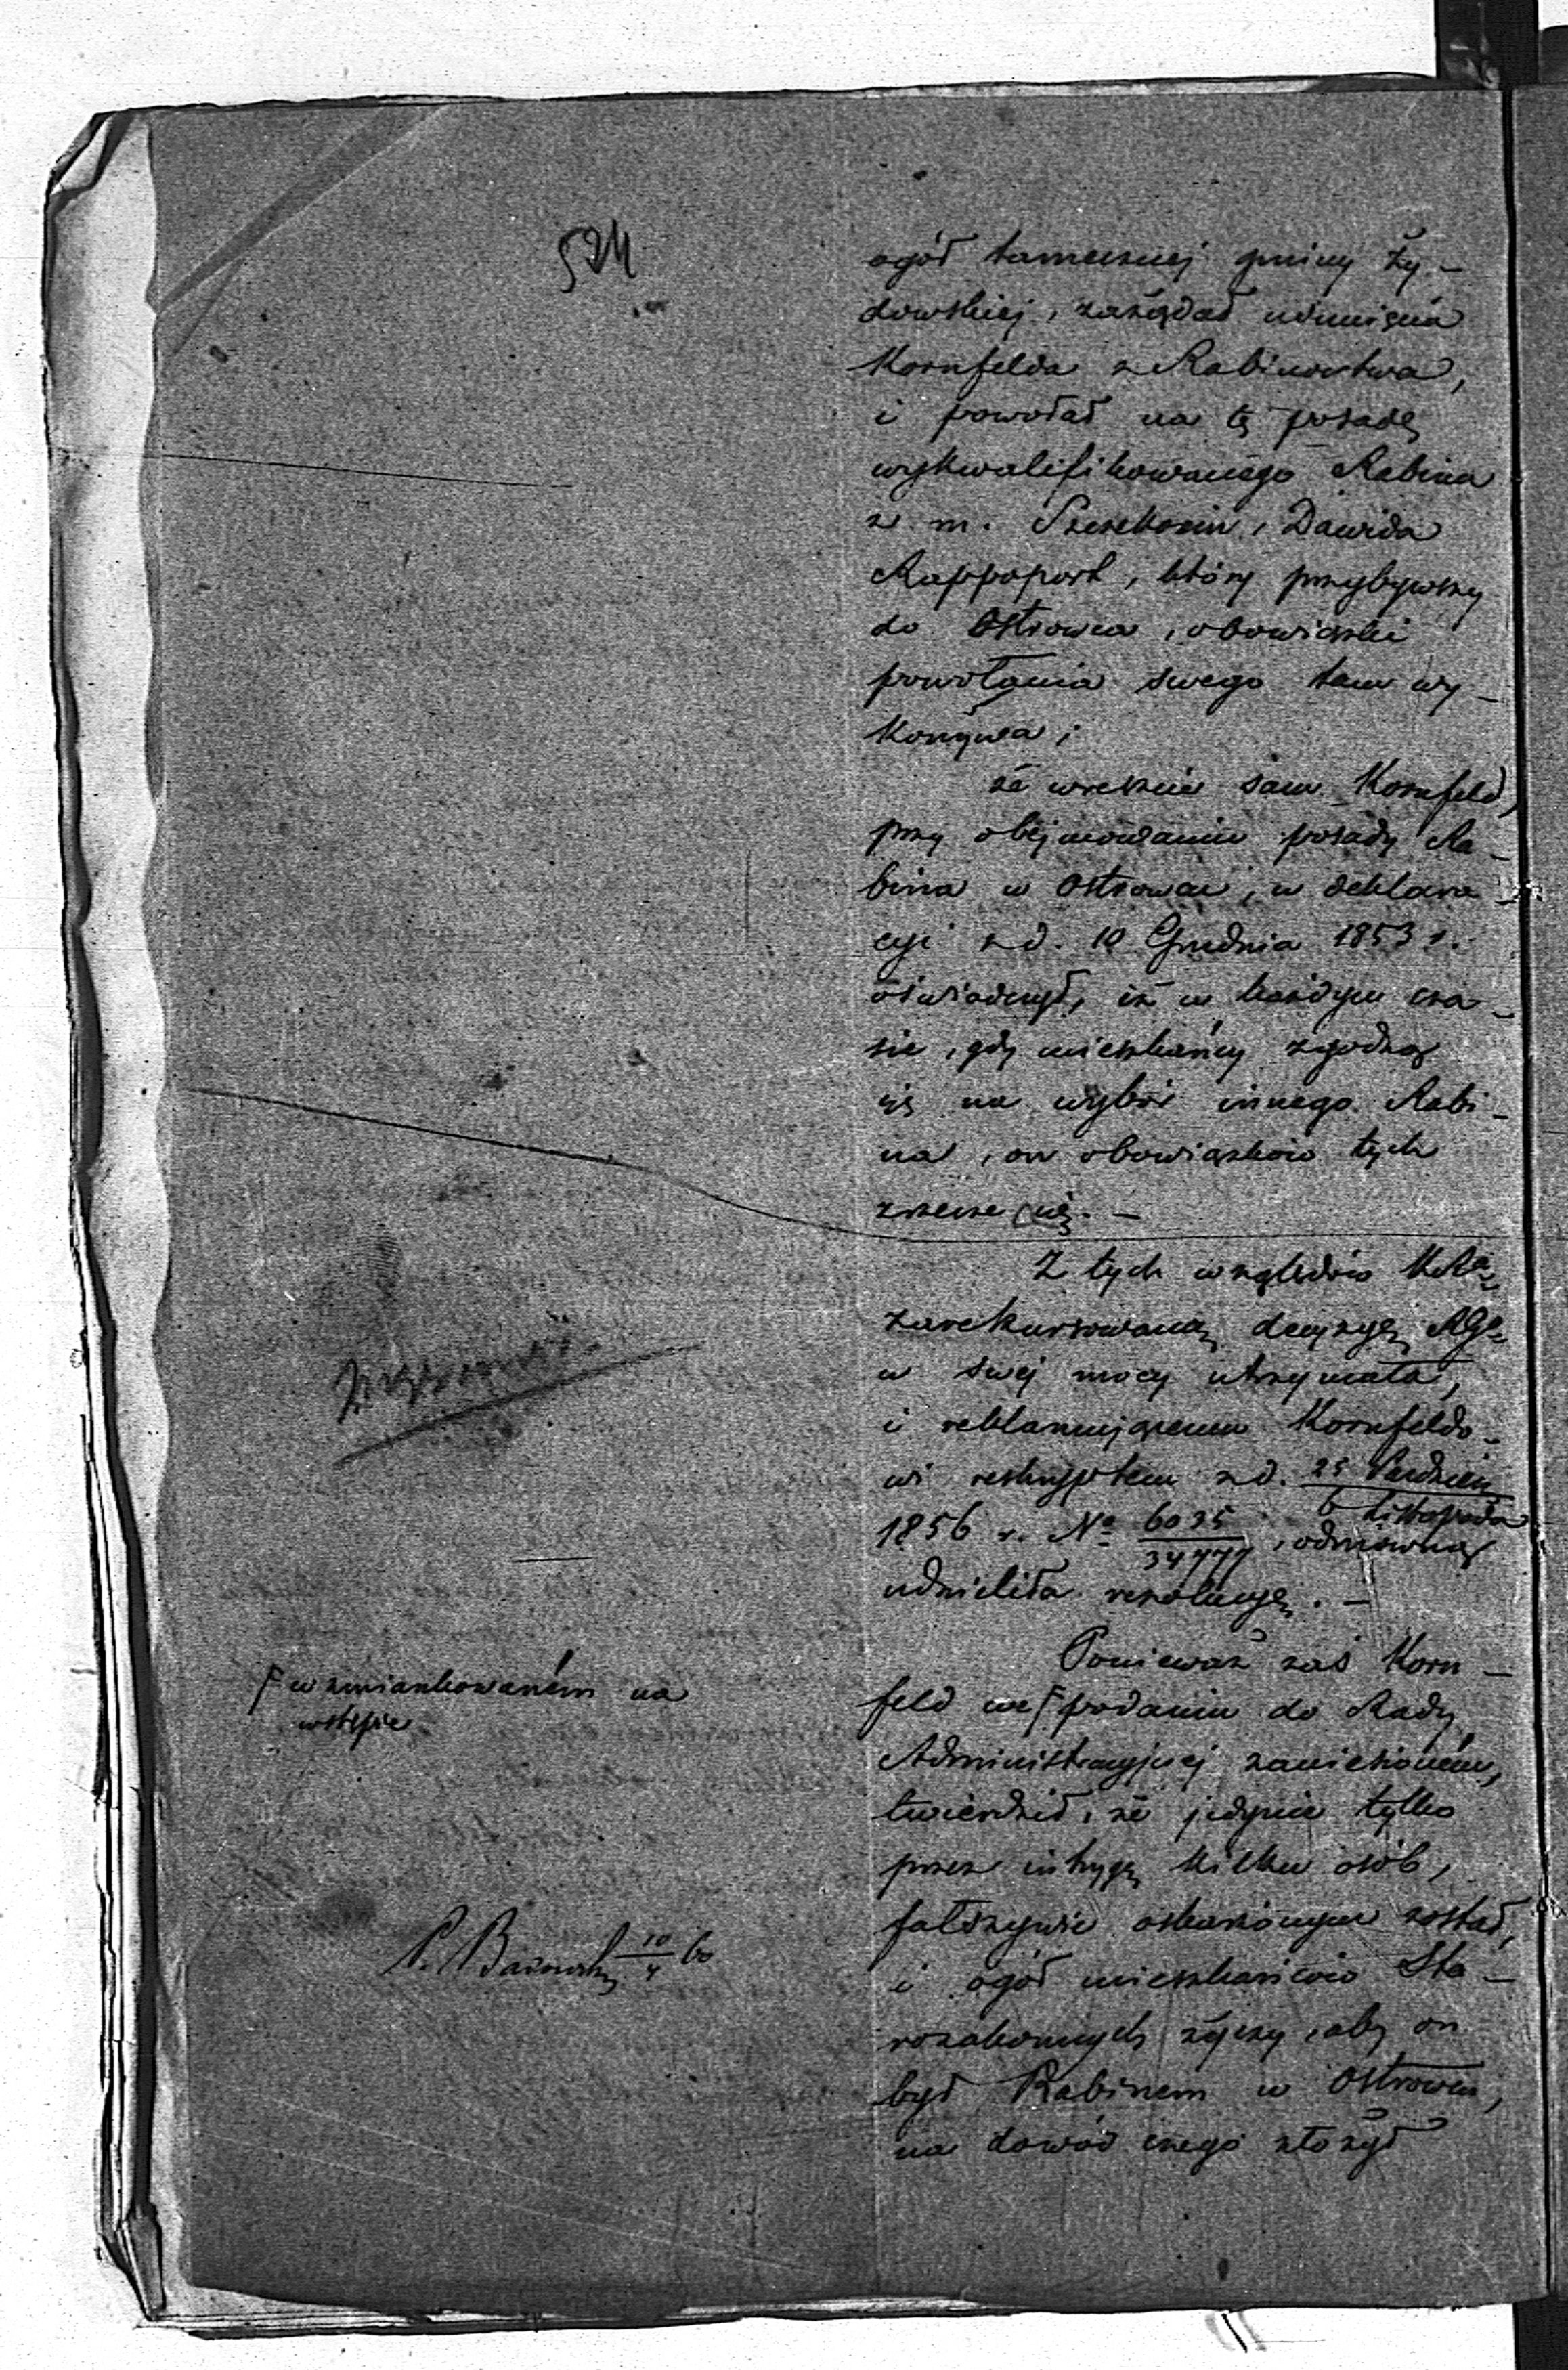 524
ogół tamecznej gminy Ży-
dowskiej, zażądał usunięcia
Kornfelda z Rabinowstwa,
i powołał na tę posadę
wykwalifikowanego Rabina
z m. Szczekocin, Dawida
Rappoport, który przybywszy
do Ostrowca, obowiązki
powołania swego tam wy-
konywa;
że wreszcie sam Kornfeld,
przy obejmowaniu posady Ra-
bina w Ostrowcu, w deklara-
cyi z d. 10 Grudnia 1853 r.
oświadczył, iż w każdym cza-
sie, gdy mieszkańcy zgodzą
się na wybór innego Rabi-
na, on obowiązków tych
zrzecze się. -
Z tych względów KR
zarekursowaną decyzyę RG
w swej mocy utrzymała,
i reklamującemu Kornfeldo-
wi reskryptem z d. 25 Paździer / 6 Listopada
1856 r. No 6035/34777, odmowną
udzieliła rezolucyę. -
Ponieważ zaś Korn-
feld we F podaniu do Rady
F wzmiankowaném na
wstępie
Administracyjnej zaniesioném,
twierdził, że jedynie tylko
przez intrygę kilku osób,
fałszywie oskarżonym został,
i ogół mieszkańców Sta-
rozakonnych życzy, aby on
był Rabinem w Ostrowcu,
na dowód czego złożył
10/4 60